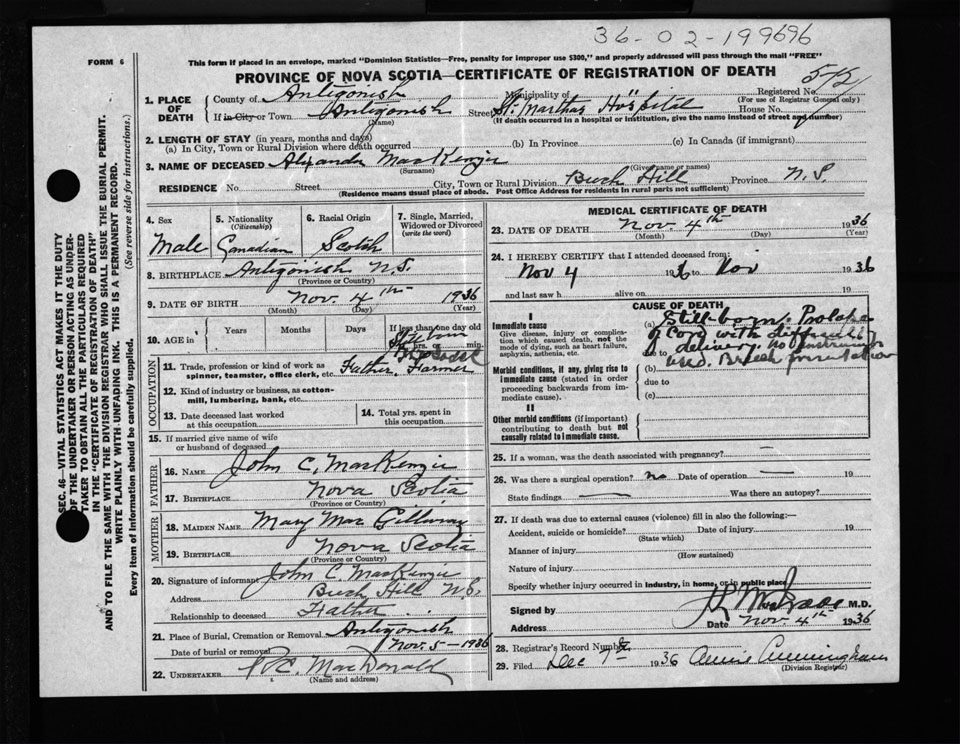 36-02-199696
FORM 6
This form if placed in an envelope, marked "Dominion Statistics—Free, penalty for improper use $300," and properly addressed will pass through the mail "FREE"
PROVINCE OF NOVA SCOTIA—CERTIFICATE OF REGISTRATION OF DEATH
1. PLACE OF DEATH
County of Antigonish
Municipality of "
Registered No.
(For use of Registrar General only)
If in City or Town Antigonish
(Name)
Street St. Marthas Hospital House No.
(If death occurred in a hospital or institution, give the name instead of street and number)
2. LENGTH OF STAY (in years, months and days)
(a) In City, Town or Rural Division where death occurred (b) In Province (c) In Canada (if immigrant)
3. NAME OF DECEASED Alexander MacKenzie
(Surname) (Given name or names)
RESIDENCE No. Street City, Town or Rural Division Beech Hill Province N.S.
(Residence means usual place of abode. Post Office Address for residents in rural parts not sufficient)
4. Sex
Male
5. Nationality
(Citizenship)
Canadian
6. Racial Origin
Scotch
7. Single, Married, Widowed or Divorced
(write the word)
8. BIRTHPLACE Antigonish N.S.
(Province or Country)
9. DATE OF BIRTH Nov. 4th 1936
(Month) (Day) (Year)
10. AGE in
Years Months Days If less than one day old
hrs. or min.
OCCUPATION
11. Trade, profession or kind of work as spinner, teamster, office clerk, etc. Father, Farmer
12. Kind of industry or business, as cotton-mill, lumbering, bank, etc.
13. Date deceased last worked at this occupation
14. Total yrs. spent in this occupation
15. If married give name of wife or husband of deceased
FATHER
16. NAME John C. MacKenzie
17. BIRTHPLACE Nova Scotia
(Province or Country)
MOTHER
18. MAIDEN NAME Mary MacGillivray
19. BIRTHPLACE Nova Scotia
(Province or Country)
20. Signature of informant John C. MacKenzie
Address Beech Hill N.S.
Relationship to deceased Father
21. Place of Burial, Cremation or Removal Antigonish
Date of burial or removal Nov. 5 – 1936
22. UNDERTAKER C. MacDonald
(Name and address)
MEDICAL CERTIFICATE OF DEATH
23. DATE OF DEATH Nov. 4th 1936
(Month) (Day) (Year)
24. I HEREBY CERTIFY that I attended deceased from:
Nov 4 1936 to Nov 1936
and last saw h alive on 19
CAUSE OF DEATH
I
Immediate cause
Give disease, injury or complication which caused death, not the mode of dying, such as heart failure, asphyxia, asthenia, etc.
(a) Still-born. Prolapse
of Cord with difficult
due to delivery. No instruments
used. Breech presentation
Morbid conditions, if any, giving rise to immediate cause (stated in order proceeding backwards from immediate cause).
(b)
due to
(c)
II
Other morbid conditions (if important) contributing to death but not causally related to immediate cause.
25. If a woman, was the death associated with pregnancy? —
26. Was there a surgical operation? no Date of operation — 19
State findings — Was there an autopsy?
27. If death was due to external causes (violence) fill in also the following:—
Accident, suicide or homicide? Date of injury 19
(State which)
Manner of injury
(How sustained)
Nature of injury
Specify whether injury occurred in industry, in home, or in public place
Signed by M.D.
Address Date Nov 4th 1936
28. Registrar's Record Number
29. Filed Dec 7 1936 Annie Cunningham
(Division Registrar)
SEC. 46—VITAL STATISTICS ACT MAKES IT THE DUTY
OF THE UNDERTAKER OR PERSON ACTING AS UNDER-
TAKER TO OBTAIN ALL THE PARTICULARS REQUIRED
IN THE "CERTIFICATE OF REGISTRATION OF DEATH"
AND TO FILE THE SAME WITH THE DIVISION REGISTRAR WHO SHALL ISSUE THE BURIAL PERMIT.
WRITE PLAINLY WITH UNFADING INK. THIS IS A PERMANENT RECORD.
Every item of information should be carefully supplied. (See reverse side for instructions.)